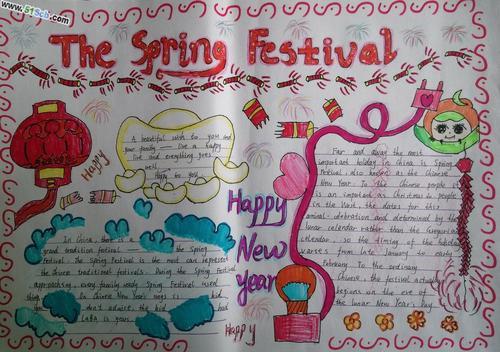 www.51Sch.com
The Spring Festival
A beautiful wish to you and
your family — live a happy
life and everything goes
well.
Happy to you
Happy
In China, there is a
grand tradition festival
the Spring
Festival. The Spring Festival is the most can represent
the Chinese traditional festivals. During the Spring Festival
approaching, every family ready Spring Festival used
thing. In Chinese New Year's songs is
kid,
you don't advise, the kid
had
LaBA is years.
Happy
New
Year
Happy
Far and away the most
important holiday in China is Spring
Festival, also known as the Chinese
New Year. To the Chinese people it
is as important as Christmas to people
in the West. The dates for this
annual celebration are determined by the
lunar calendar rather than the Gregorian
calendar, so the timing of the holiday
varies from late January to early
February. To the ordinary
Chinese, the festival actually
begins on the eve of
the lunar New Year's Day